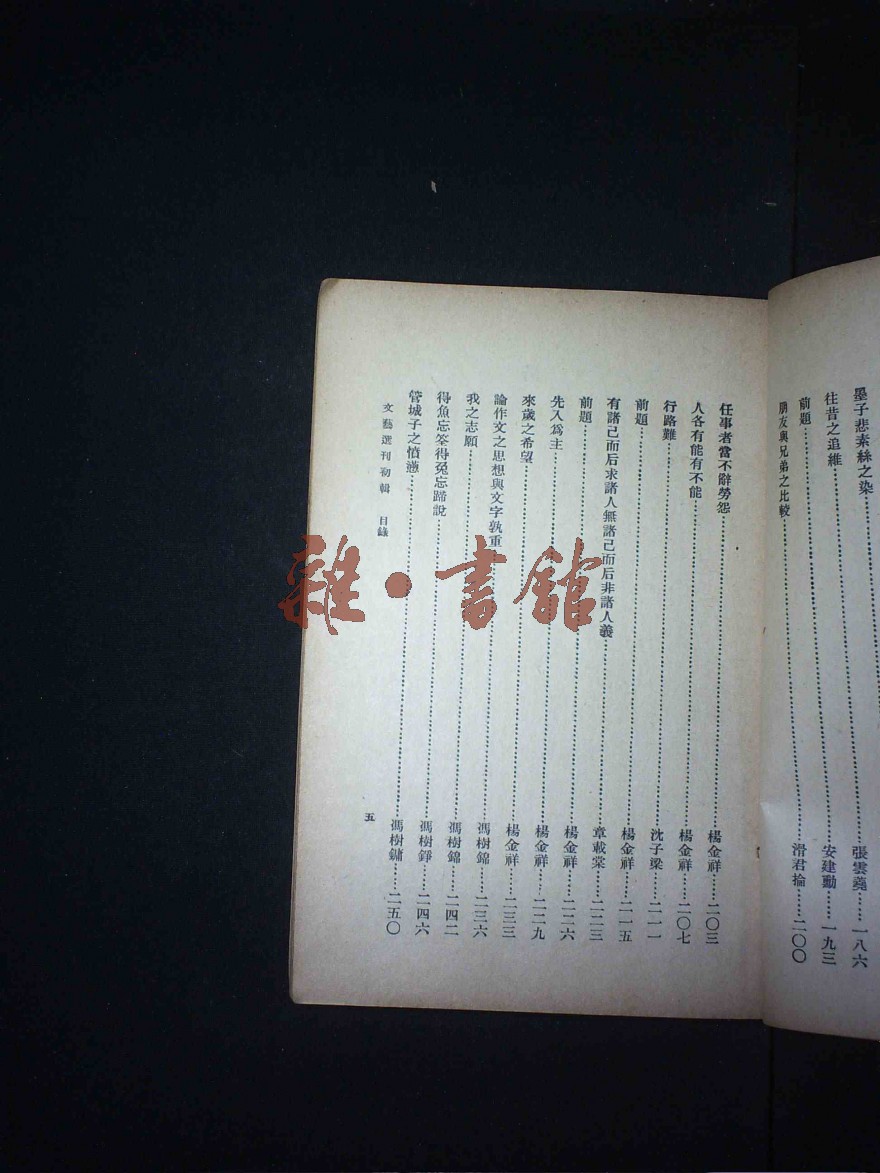 墨子悲素絲之染
往昔之追維……張雲蕘……一八六
前題……安建勳……一九三
朋友與兄弟之比較……滑君掄……二〇〇
任事者當不辭勞怨……楊金祥……二〇三
人各有能有不能……楊金祥……二〇七
行路難……沈子梁……二一一
前題……楊金祥……二一五
有諸己而后求諸人無諸己而后非諸人義……章載棠……二二三
前題……楊金祥……二二六
先入爲主……楊金祥……二二九
來歲之希望……楊金祥……二三三
論作文之思想與文字孰重……馮樹錦……二三六
我之志願……馮樹錦……二四二
得魚忘筌得兔忘蹄說……馮樹鐸……二四六
管城子之憤懣……馮樹鏞……二五〇
文藝選刊初輯 目錄
五
雜·書館